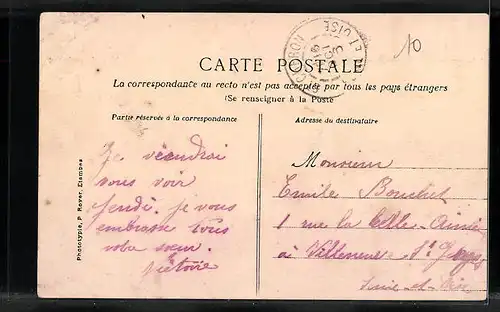 10
CARTE POSTALE
La correspondance au recto n'est pas acceptée par tous les pays étrangers
(Se renseigner à la Poste
Partie réservée à la correspondance
Adresse du destinataire
Je viendrai
vous voir
jendi. je vous
embrasse tous
votre sœur.
Victoire
Monsieur
Emile Bouchet
1 rue la
à Villeneuve St Georges
Seine-et-Oise
Phototypie, P. Royer, Etampes